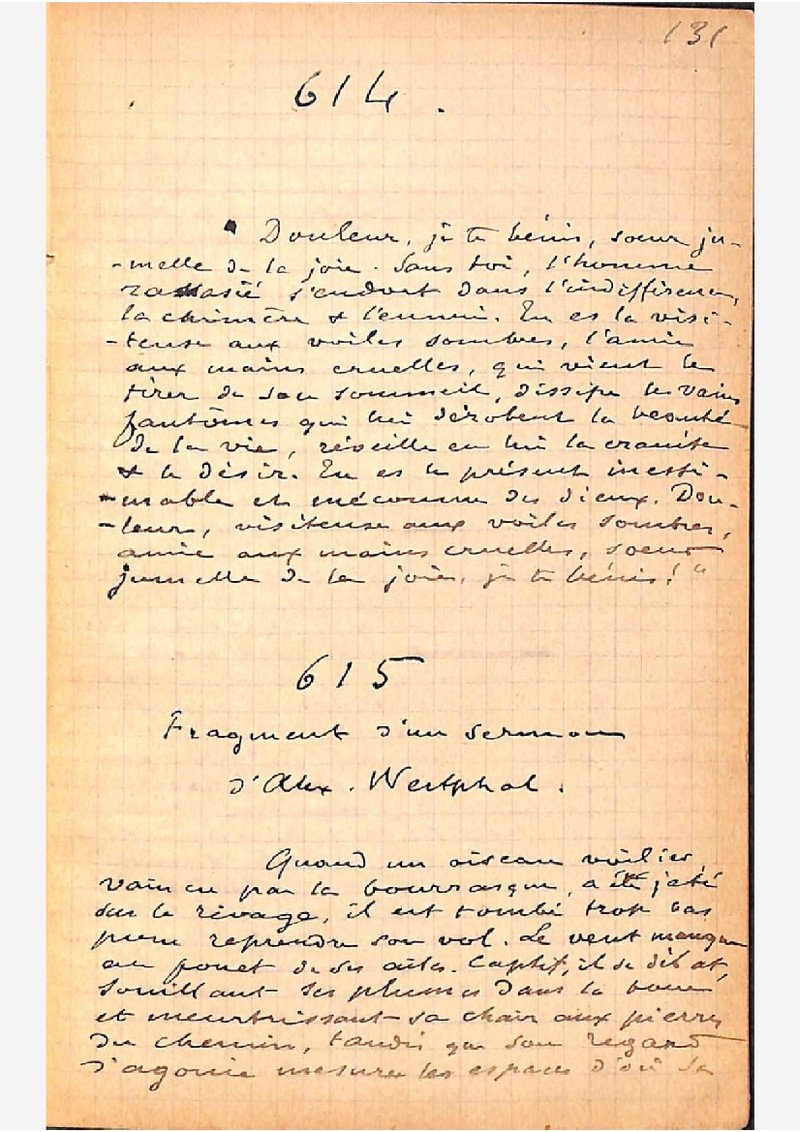 131
614.
" Douleur, je te bénis, soeur ju-
-melle de la joie. Sans toi, l'homme
rassasié s'endort dans l'indifférence,
la chimère & l'ennui. Tu es la visi-
-teuse aux voiles sombres, l'amie
aux mains cruelles, qui vient le
tirer de son sommeil, dissipe les vains
fantômes qui lui dérobent la beauté
de la vie, réveille en lui la crainte
& le désir. Tu es le présent inesti-
-mable et méconnu des dieux. Dou-
-leur, visiteuse aux voiles sombres,
amie aux mains cruelles, soeur
jumelle de la joie, je te bénis! "
615
Fragment d'un sermon
d'Alex. Westphal.
Quand un oiseau voilier,
vaincu par la bourrasque, a été jeté
sur le rivage, il est tombé trop bas
pour reprendre son vol. Le vent manque
au fouet de ses ailes. Captif, il se débat,
souillant ses plumes dans la boue
et meurtrissant sa chair aux pierres
du chemin, tandis que son regard
d'agonie mesure les espaces d'où sa